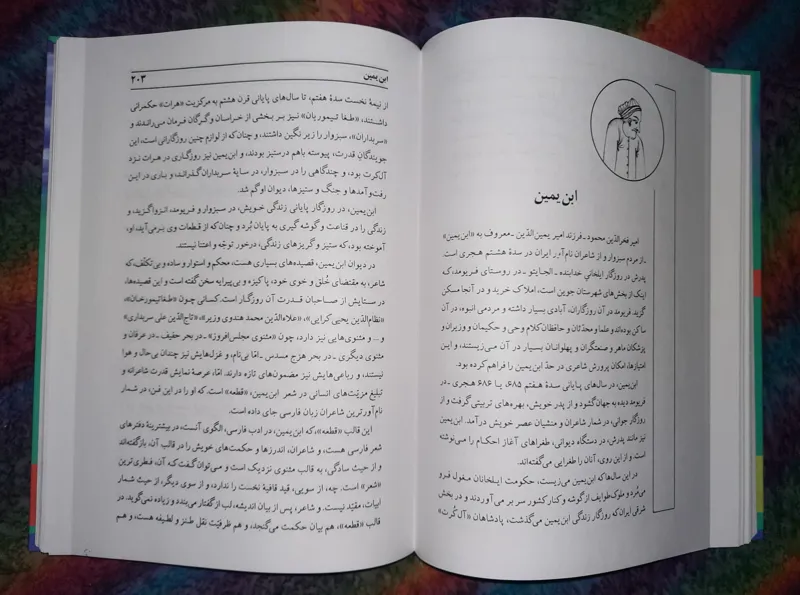 ابن یمین
امیر فخرالدّین محمود ـ فرزند امیر یمین‌الدّین ـ معروف به «ابن‌یمین»
ـ از مردم سبزوار و از شاعران نام‌آور ایران در سدهٔ هشتم هجری است.
پدرش در روزگار ایلخانیِ خدابنده ـ الجایتو ـ در روستای فریومد، ک
اینک از بخش‌های شهرستان جوین است، املاک خرید و در آنجا مسکن
گزید. فریومد در آن روزگاران، آبادی بسیار داشته و مردمی انبوه، در آن
ساکن بوده‌اند و علما و محدّثان و حافظان کلام وحی و حکیمان و وزیران و
پزشکان ماهر و صنعتگران و پهلوانان بسیار در آن می‌زیستند، و این
امتیازها، امکان پرورش شاعری در حدّ ابن‌یمین را فراهم کرده بود.
ابن‌یمین، در سال‌های پایانی سدهٔ هفتم ۶۸۵، یا ۶۸۶ هجری ـ در
فریومد دیده به جهان گشود و از پدر خویش، بهره‌های تربیتی گرفت و از
روزگار جوانی، در شمار شاعران و منشیان عصر خویش درآمد. ابن‌یمین
نیز مانند پدرش، در دستگاه دیوانی، طغراهای آغاز احکام را می‌نوشته
است، و از این روی، آنان را طغرایی می‌گفته‌اند.
در این سال‌ها که ابن‌یمین می‌زیست، حکومت ایلخانان مغول فرو
می‌مُرد و ملوک‌طوایف از گوشه و کنار کشور سر بر می‌آوردند و در بخش
شرقی ایران که روزگار زندگی ابن‌یمین می‌گذشت، پادشاهان «آل‌کُرت»
ابن یمین ۲۰۳
از نیمهٔ نخست سدهٔ هفتم، تا سال‌های پایانی قرن هشتم به مرکزیت «هرات» حکمرانی
داشتند، «طغا تیموریان» نیز بر بخشی از خراسان و گرگان فرمان می‌راندند و
«سربداران»، سبزوار را زیر نگین داشتند، و چنان‌که از لوازم چنین روزگارانی است، این
جویندگان قدرت، پیوسته باهم درستیز بودند، و ابن‌یمین نیز روزگاری در هرات نزد
آل‌کرت بود، و چندگاهی را در سبزوار، در سایهٔ سربداران گذراند، و باری در این
رفت و آمدها و جنگ و ستیزها، دیوان او گم شد.
ابن‌یمین، در روزگار پایانی زندگی خویش، در سبزوار و فریومد، انزوا گزید، و
زندگی را در قناعت و گوشه‌گیری به پایان بُرد و چنان‌که از قطعات وی برمی‌آید، او،
آموخته بود، که ستیز و گریزهای زندگی، درخور توجّه و اعتنا نیستند.
در دیوان ابن‌یمین، قصیده‌های بسیاری هست، محکم و استوار و ساده و بی‌تکلّف، که
شاعر، به مقتضای خُلق و خوی خود، پاکیزه و بی‌پیرایه سخن گفته است و این قصیده‌ها،
در ستایش از صاحبان قدرت آن روزگار است، کسانی چون «طغاتیمورخان»،
«نظام‌الدّین یحیی کرابی»، «علاءالدّین محمد هندوی وزیر»، «تاج‌الدّین علی سربداری»
و... و مثنوی‌هایی نیز دارد، چون «مثنوی مجلس‌افروز» ـ در بحر خفیف ـ در عرفان و
مثنوی دیگری ـ در بحر هزج مسدس ـ امّا بی‌نام، و غزل‌هایش نیز چندان بی‌حال و هوا
نیستند، و رباعی‌هایش نیز مضمون‌های تازه دارند. امّا، عرصهٔ نمایش قدرت شاعرانه و
تبلیغ مزیّت‌های انسانی در شعر ابن‌یمین، «قطعه» است، که او را در این فن، در شمار
نام‌آورترین شاعران زبان فارسی جای داده است.
این قالب «قطعه»، که ابن‌یمین، در ادب فارسی، الگوی آنست، در بیشترینهٔ دفترهای
شعر فارسی هست، و شاعران، اندرزها و حکمت‌های خویش را در قالب آن، بازگفته‌اند
و از حیث سادگی، به قالب مثنوی نزدیک است و می‌توان گفت که آن، فطری‌ترین
«شعر» است. چه، از سویی، قید قافیهٔ نخست را ندارد، و از سوی دیگر، از حیث شمار
ابیات، مقیّد نیست. و شاعر، پس از بیان اندیشه، لب از گفتار می‌بندد و زیاده نمی‌گوید. در
قالب «قطعه»، هم بیان حکمت می‌گنجد، و هم ظرفیّت نقل طنز و لطیفه هست، و هم